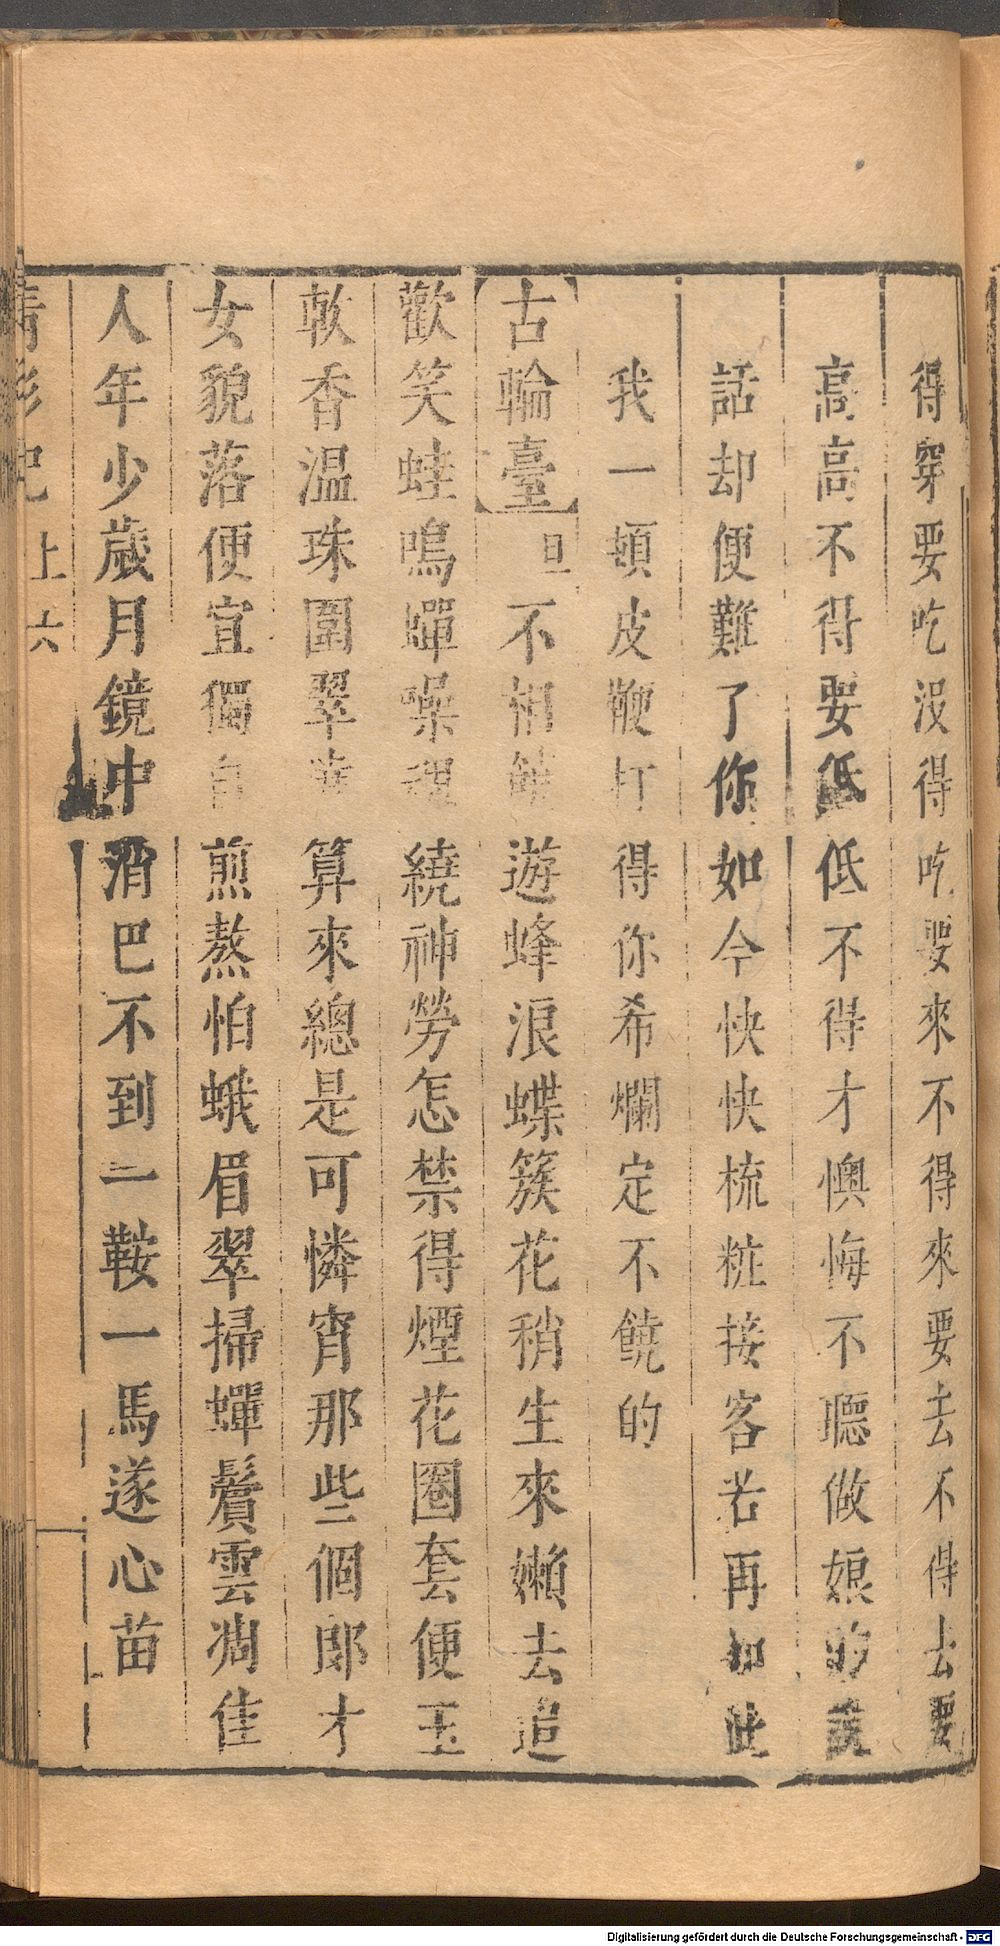 得穿要吃沒得吃要來不得來要去不得去要
高高不得要低低不得才懊悔不聽做娘的說
話却便難了你如今快快梳粧接客若再如此
我一頓皮鞭打得你希爛定不饒的
古輪臺 旦 不相饒遊蜂浪蝶簇花稍生來嬾去追
歡笑蛙鳴蟬噪 繞神勞怎禁得煙花圈套便玉
軟香溫珠圍翠 算來總是可憐宵那些個郎才
女貌落便宜獨自煎熬怕蛾眉翠掃蟬鬢雲凋佳
人年少歲月鏡中消巴不到一鞍一馬遂心苗
上 六
Digitalisierung gefördert durch die Deutsche Forschungsgemeinschaft - DFG